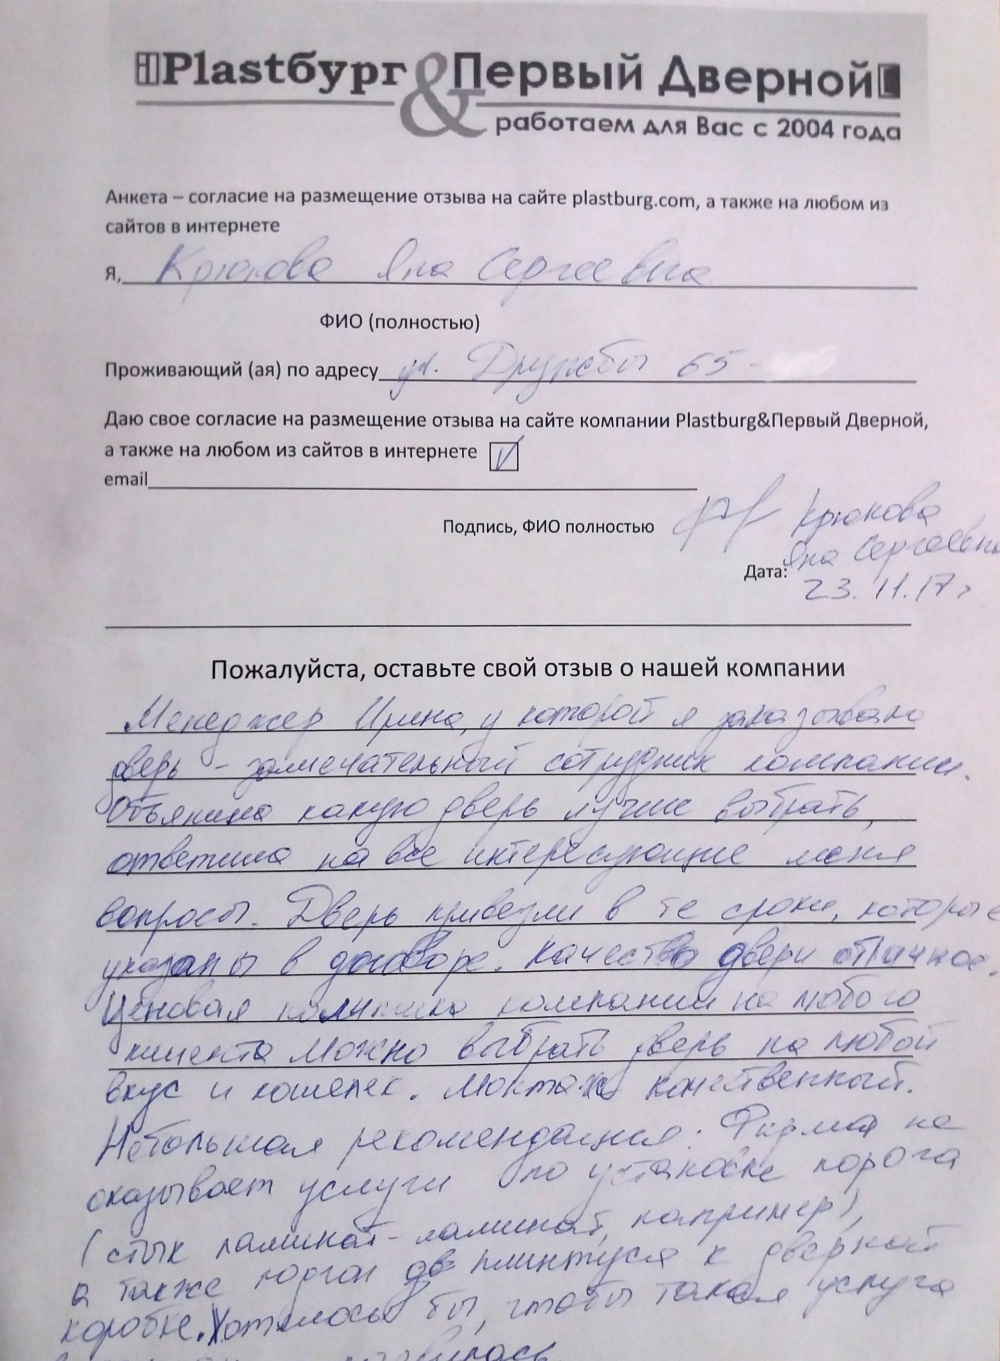 Plastбург & Первый Дверной
работаем для Вас с 2004 года
Анкета – согласие на размещение отзыва на сайте plastburg.com, а также на любом из
сайтов в интернете
Я, Крюкова Яна Сергеевна
ФИО (полностью)
Проживающий (ая) по адресу ул. Дружбы 65 -
Даю свое согласие на размещение отзыва на сайте компании Plastburg&Первый Дверной,
а также на любом из сайтов в интернете
email
Подпись, ФИО полностью Крюкова
Яна Сергеевна
Дата: 23.11.17г
Пожалуйста, оставьте свой отзыв о нашей компании
Менеджер Ирина, у которой я заказывала
дверь - замечательный сотрудник компании.
Объяснила какую дверь лучше выбрать,
ответила на все интересующие меня
вопросы. Дверь привезли в те сроки, которые
указаны в договоре. Качество двери отличное.
Ценовая политика компании на любого
клиента можно выбрать дверь на любой
вкус и кошелек. Монтаж качественный.
Небольшая рекомендация: Фирма не
оказывает услуги по установке порога
(стык ламинат-ламинат, например),
а также плинтуся к дверной
коробке. Хотелось бы, чтобы такая услуга